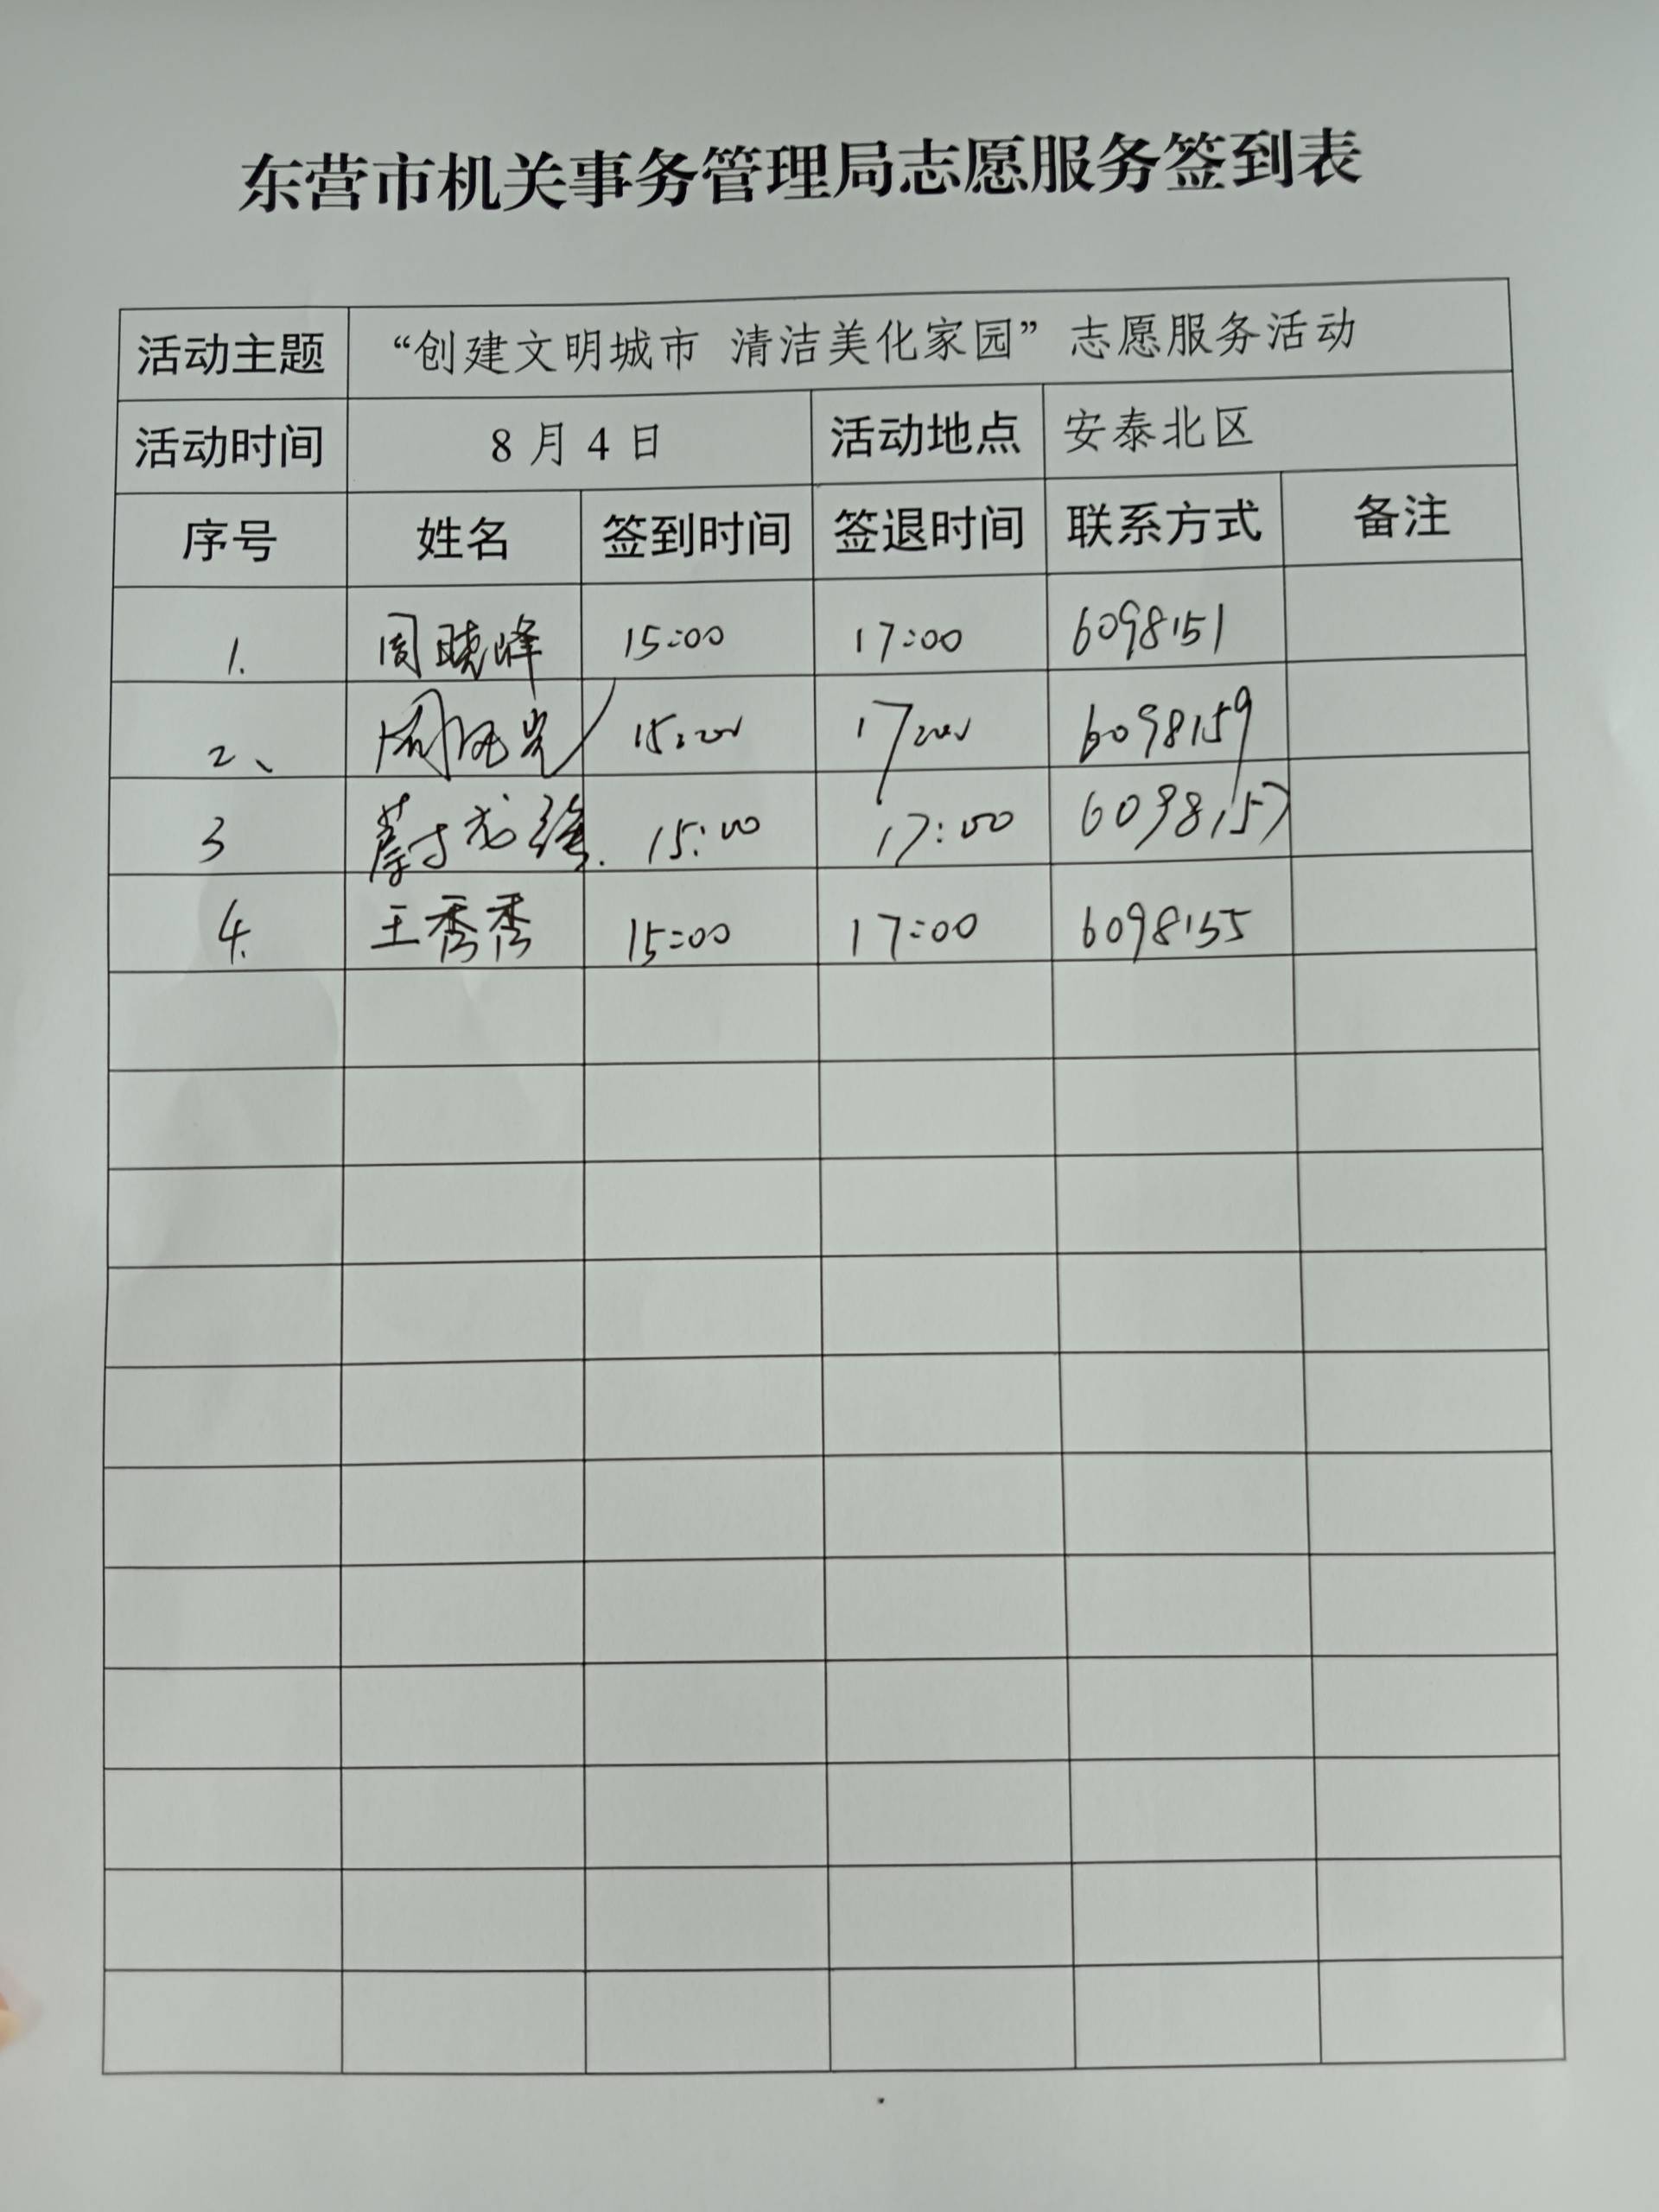 东营市机关事务管理局志愿服务签到表
活动主题 “创建文明城市 清洁美化家园”志愿服务活动
活动时间 8月4日 活动地点 安泰北区
序号 姓名 签到时间 签退时间 联系方式 备注
1. 周晓峰 15:00 17:00 6098151
2、 周 15:00 17:00 6098159
3 15:00 17:00 6098157
4. 王秀秀 15:00 17:00 6098155